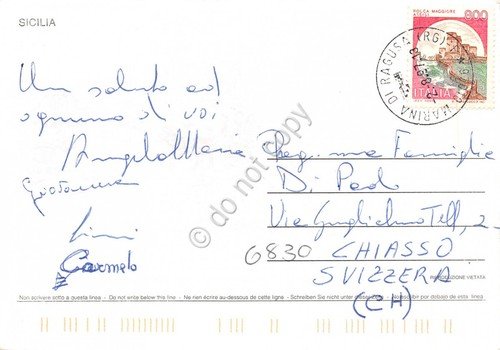 SICILIA
ROCCA MAGGIORE
800
ITALIA
MARINA DI RAGUSA (RG)
Un saluto ad
ognuno di voi
Angelo Maria
Carmelo
Famiglia
Di
Via Guglielmo Tell, 2
6830 CHIASSO
SVIZZERA
(CH)
do not copy
RIPRODUZIONE VIETATA
Non scrivere sotto a questa linea - Do not write below this line - Ne rien écrire au-dessous de cette ligne - Schreiben Sie nicht unter No escribir por debajo de esta línea